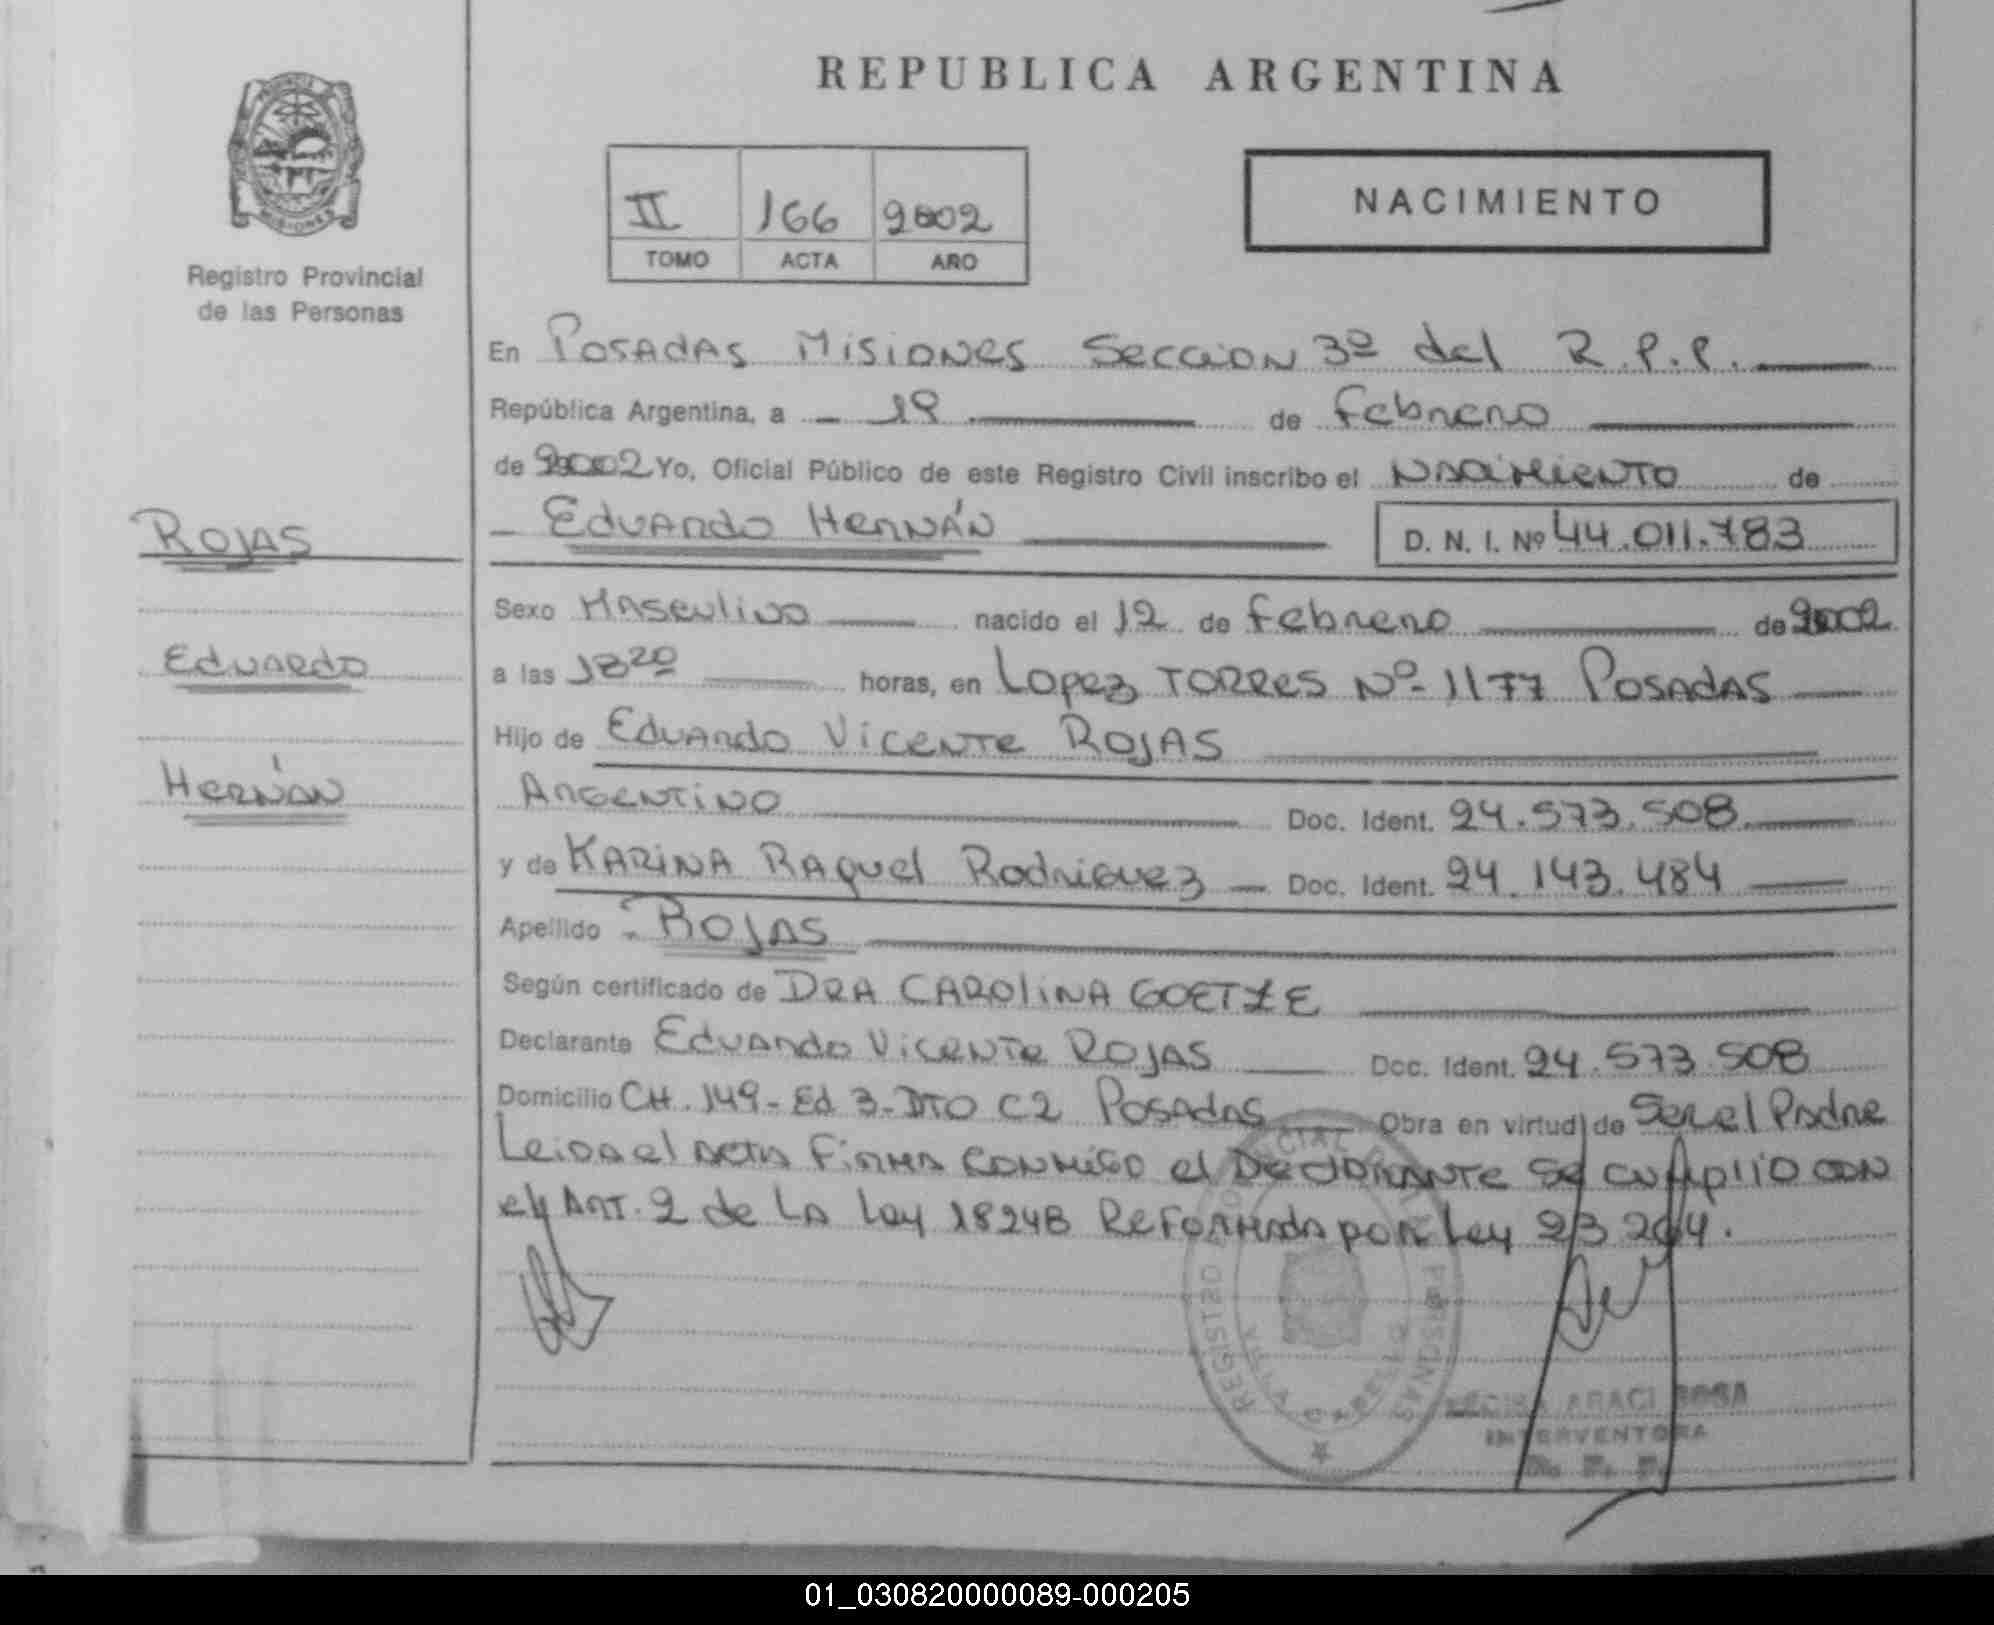 REPUBLICA ARGENTINA
NACIMIENTO
II 166 2002
TOMO ACTA AÑO
Registro Provincial
de las Personas
En Posadas Misiones Seccion 3º del R.P.P.
República Argentina, a 19 de Febrero
de 2002 Yo, Oficial Público de este Registro Civil inscribo el Nacimiento de
Eduardo Hernán D. N. I. Nº 44.011.783
ROJAS
Sexo Masculino nacido el 12 de Febrero de 2002
Eduardo
a las 18 20 horas, en Lopez TORRES Nº 1177 Posadas
Hijo de Eduardo Vicente ROJAS
Hernán
Argentino Doc. Ident. 24.573.508
y de KARINA RAquel Rodriguez Doc. Ident. 24.143.484
Apellido ROJAS
Según certificado de DRA CAROLINA GOETZE
Declarante Eduardo Vicente ROJAS Doc. Ident. 24.573.508
Domicilio CH. 149 - Ed 3 - DTO C2 Posadas Obra en virtud de Ser el Padre
Leida el acta Firma conmigo el Declarante se cumplio con
el Art. 2 de La Ley 18248 Reformada por Ley 23264.
REGISTRO PROVINCIAL DE LAS PERSONAS
VILLA CABELLO
ARACI ROSA
INTERVENTORA
01_030820000089-000205